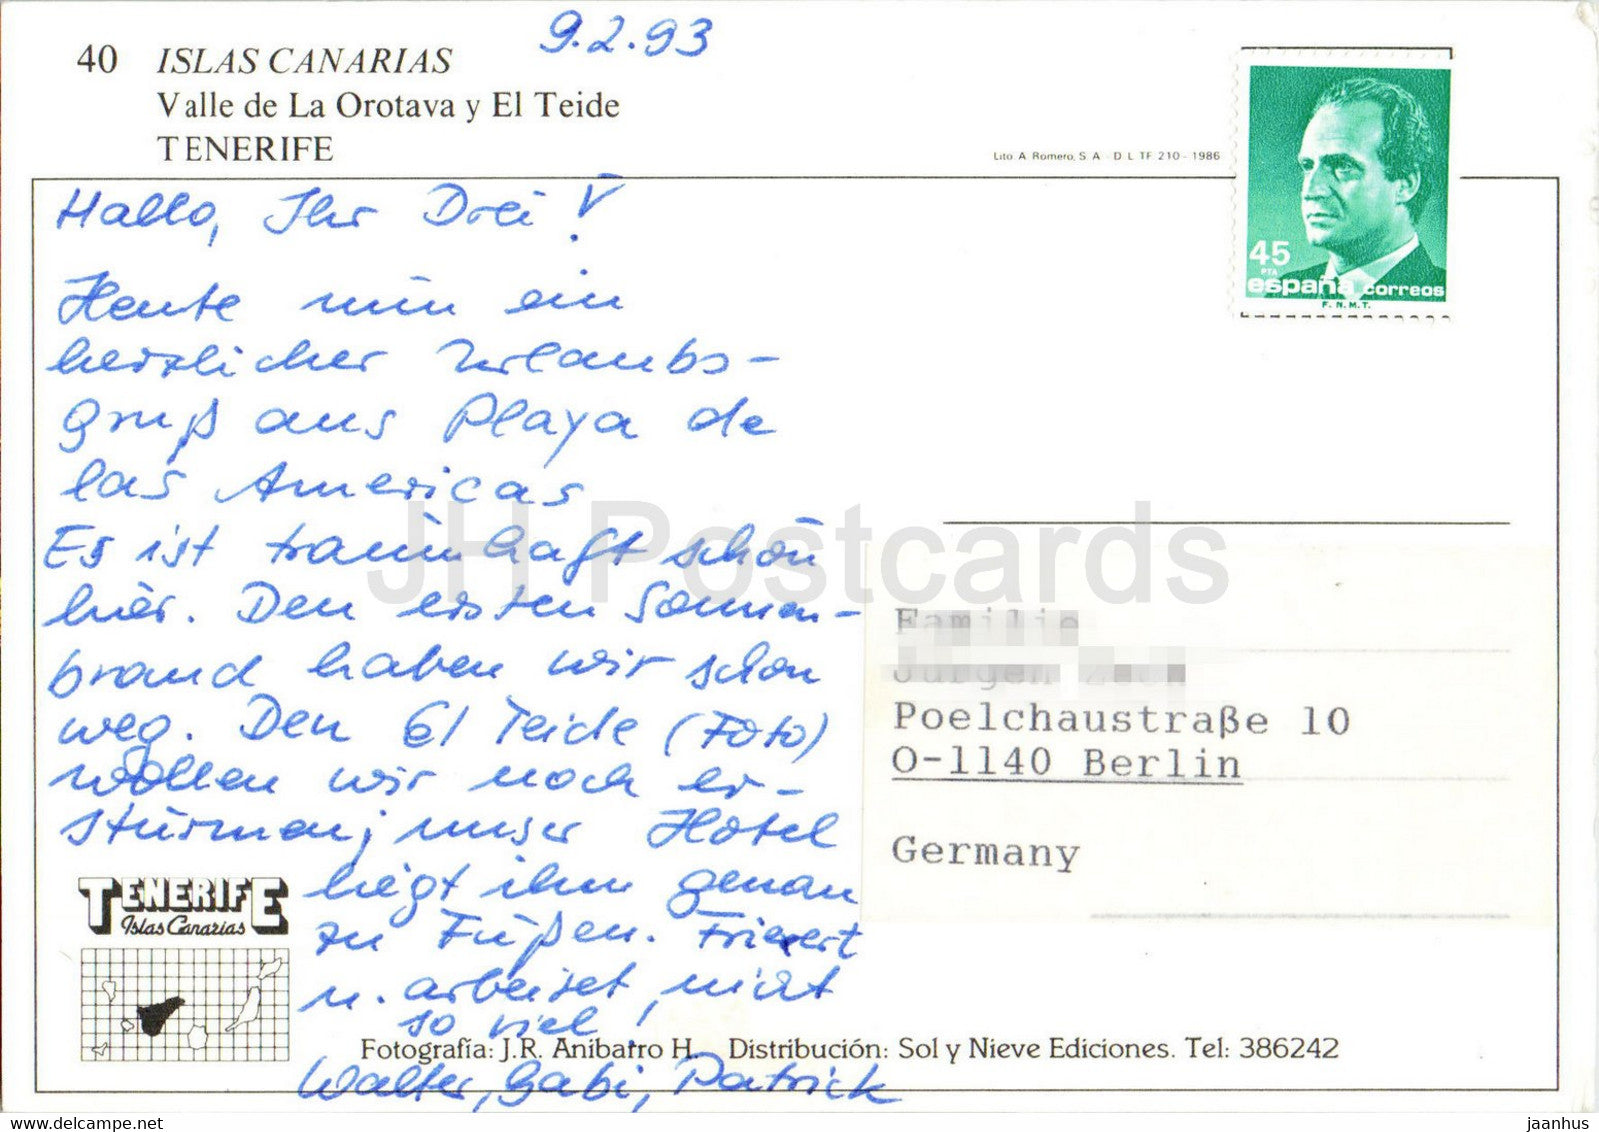 9.2.93
40 ISLAS CANARIAS
Valle de La Orotava y El Teide
TENERIFE
Lito A Romero, S A - D L TF 210 - 1986
45
PTA
españa correos
F.N.M.T.
Hallo, Ihr Drei!
Heute nun ein
herzlicher Urlaubs-
gruß aus Playa de
las Americas
Es ist traumhaft schön
hier. Den ersten Sonnen-
brand haben wir schon
weg. Den El Teide (Foto)
wollen wir noch er-
stürmen; unser Hotel
liegt ihm genau
zu Füßen. Frieert
u. arbeitet nicht
so viel!
Walter, Gabi, Patrick
JH Postcards
Familie
Poelchaustraße 10
O-1140 Berlin
Germany
TENERIFE
Islas Canarias
Fotografía: J.R. Anibarro H. Distribución: Sol y Nieve Ediciones. Tel: 386242
delcampe.net
jaanhus